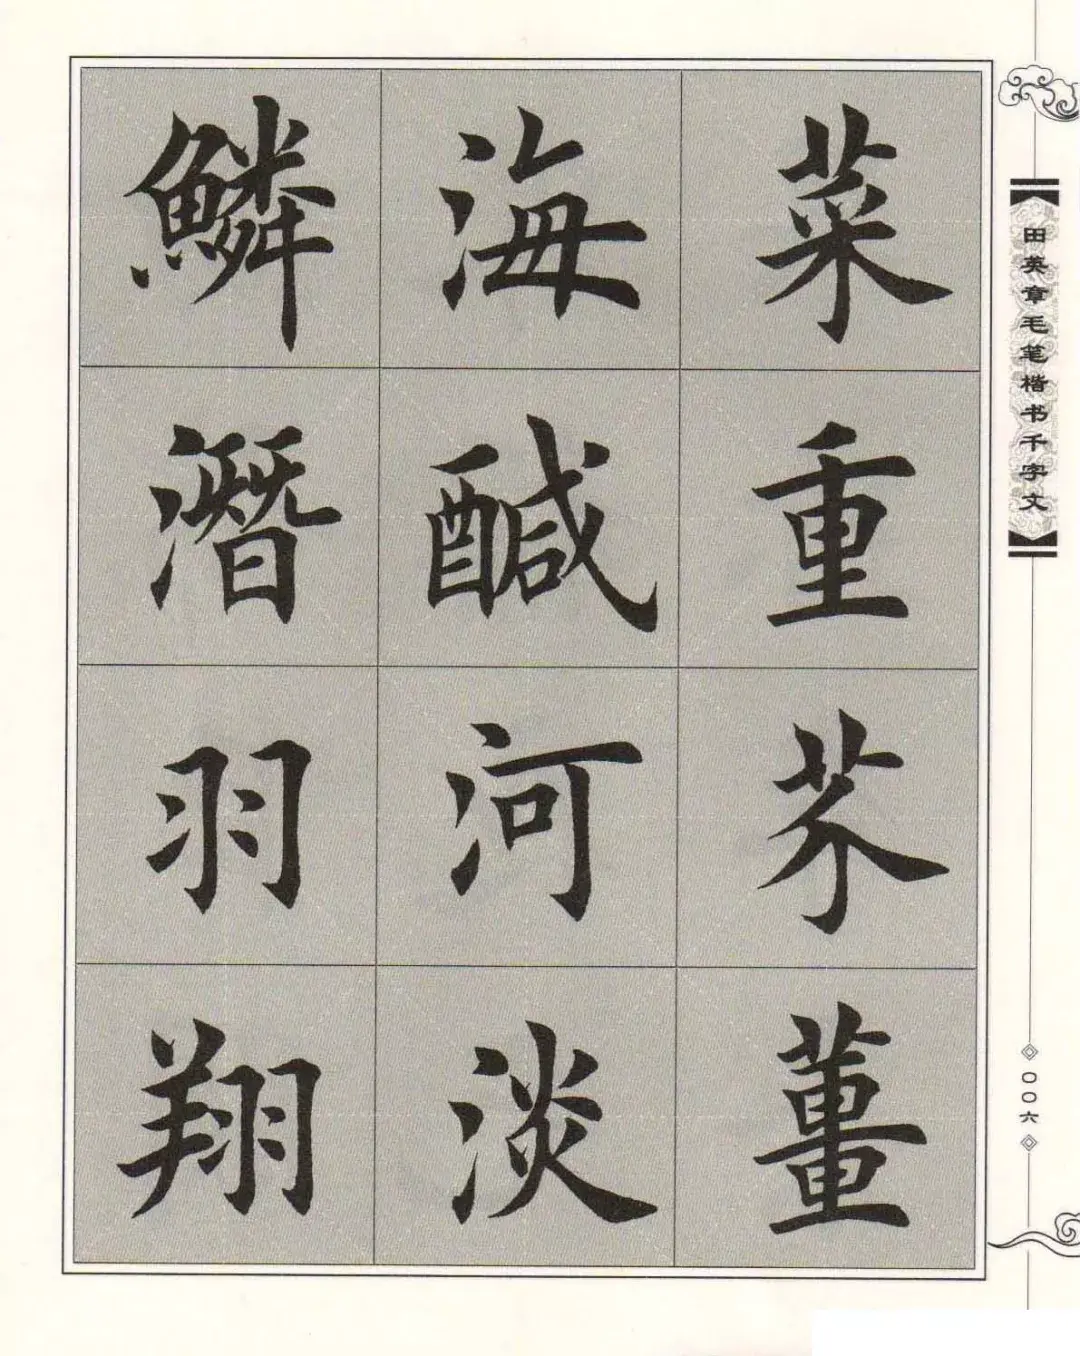 菜重芥薑
海醎河淡
鱗潛羽翔
田英章毛笔楷书千字文
〇〇六